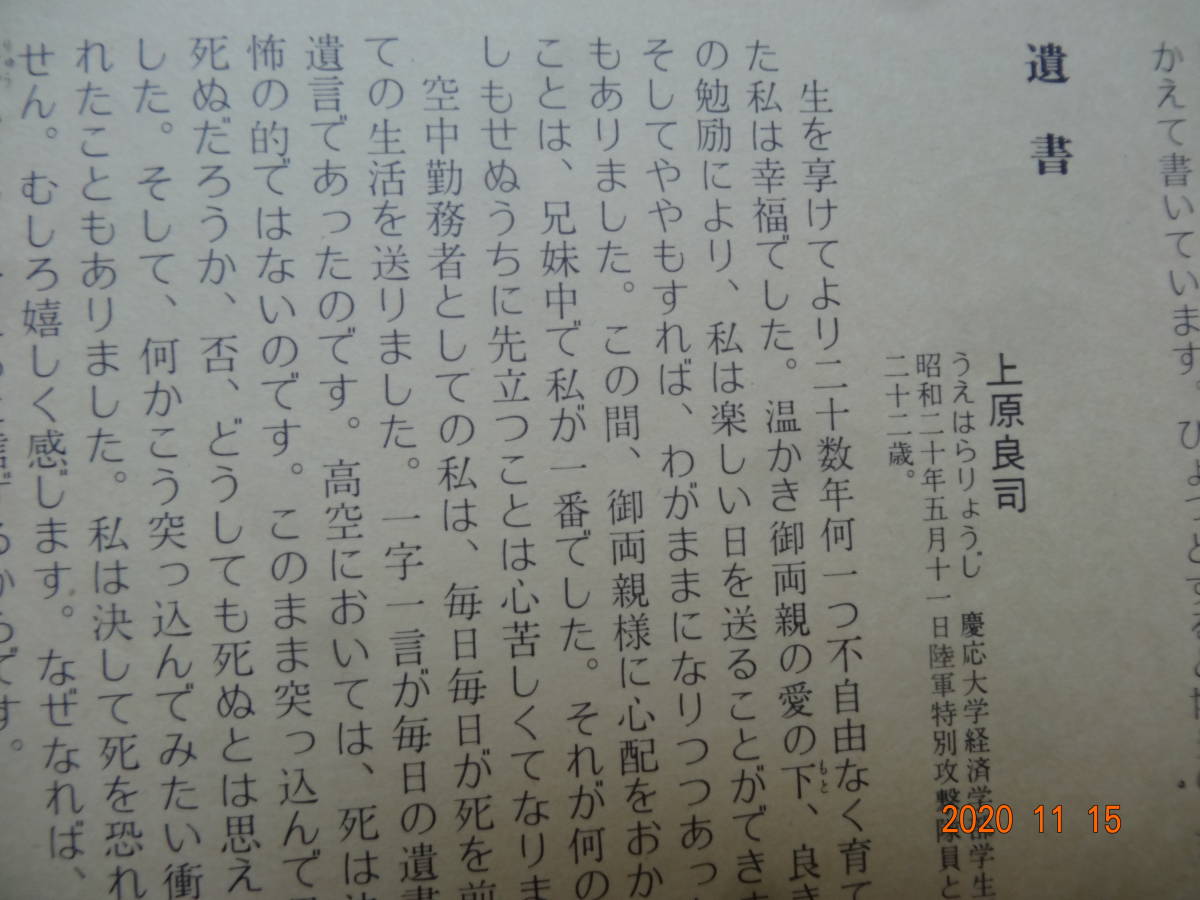 かえて書いています。ひょっとすると
遺書
上原良司
うえはらりょうじ 慶応大学経済学部学生
昭和二十年五月十一日陸軍特別攻撃隊員と
二十二歳。
生を享けてより二十数年何一つ不自由なく育て
た私は幸福でした。温かき御両親の愛の下、良き
もと
の勉励により、私は楽しい日を送ることができま
そしてややもすれば、わがままになりつつあっ
もありました。この間、御両親様に心配をおか
ことは、兄妹中で私が一番でした。それが何の
しもせぬうちに先立つことは心苦しくてなりま
空中勤務者としての私は、毎日毎日が死を前
ての生活を送りました。一字一言が毎日の遺書
遺言であったのです。高空においては、死は決
怖の的ではないのです。このまま突っ込んで
死ぬだろうか、否、どうしても死ぬとは思え
した。そして、何かこう突っ込んでみたい衝
れたこともありました。私は決して死を恐れ
せん。むしろ嬉しく感じます。なぜなれば、
信ずるからです。
2020 11 15